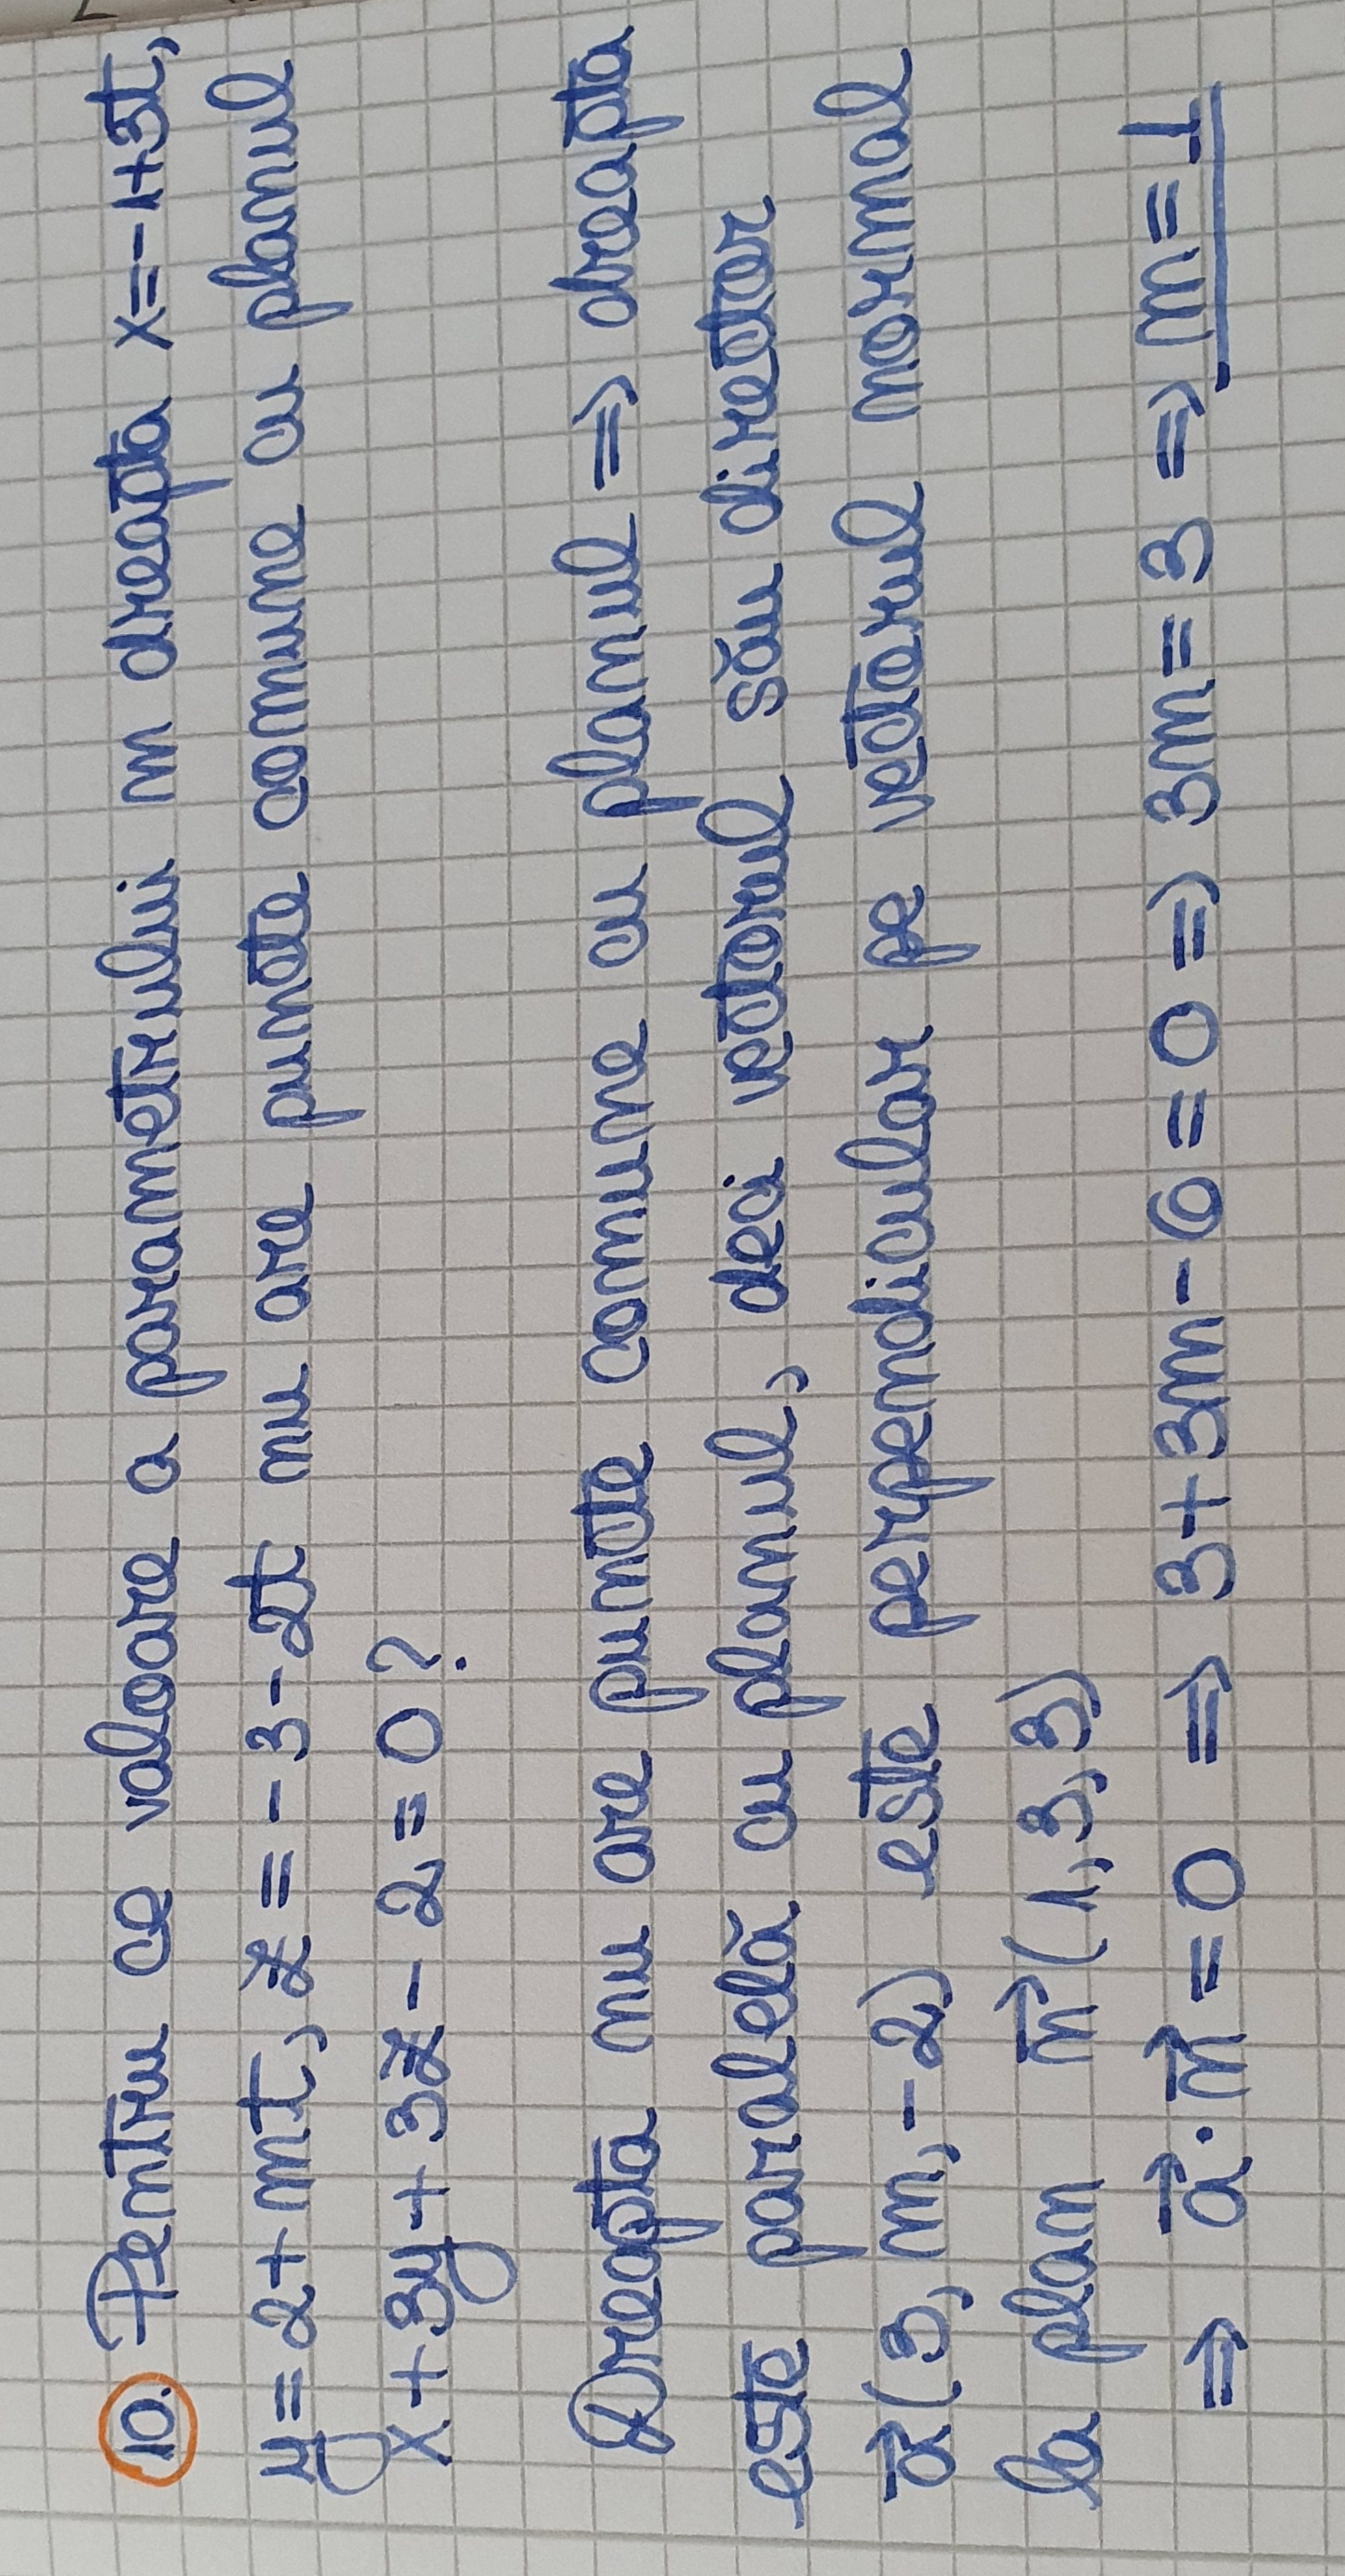 10. Pentru ce valoare a parametrului m dreapta x=-1+3t,
y=2+mt, z=-3-2t nu are puncte comune cu planul
x+3y+3z-2=0?
Dreapta nu are puncte comune cu planul ⇒ dreapta
este paralelă cu planul, deci vectorul său director
a⃗(3, m, -2) este perpendicular pe vectorul normal
la plan n⃗(1,3,3)
⇒ a⃗·n⃗=0 ⇒ 3+3m-6=0 ⇒ 3m=3 ⇒ m=1